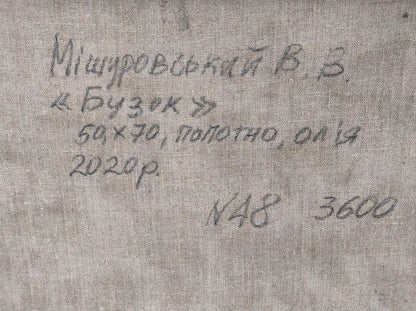 Мішуровський В. В.
«Бузок»
50х70, полотно, олія
2020р.
№48 3600